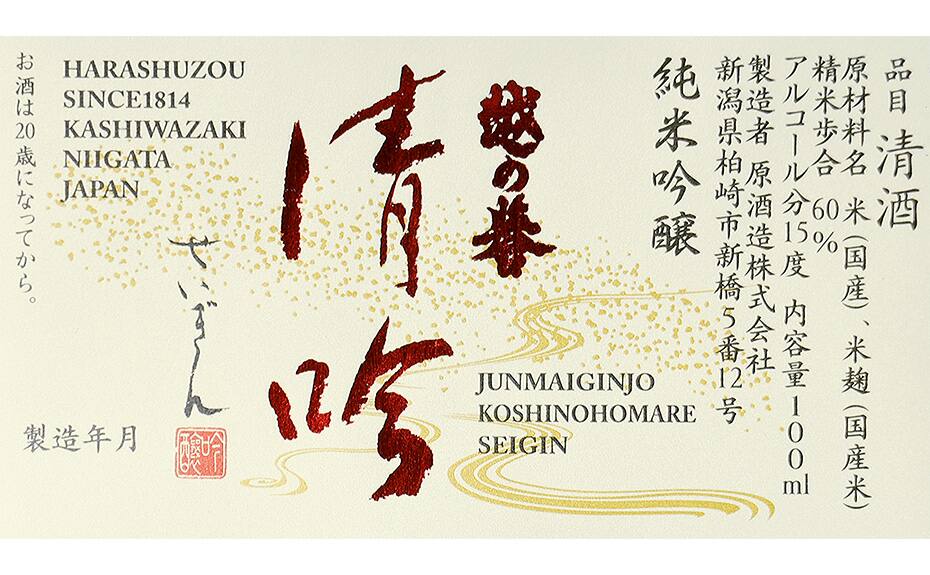 品目 清酒
原材料名 米(国産)、米麹(国産米)
精米歩合 60%
アルコール分15度 内容量100ml
製造者 原酒造株式会社
新潟県柏崎市新橋5番12号
純米吟醸
越の誉
清吟
JUNMAIGINJO
KOSHINOHOMARE
SEIGIN
せいぎん
吟醸
HARASHUZOU
SINCE1814
KASHIWAZAKI
NIIGATA
JAPAN
製造年月
お酒は20歳になってから。